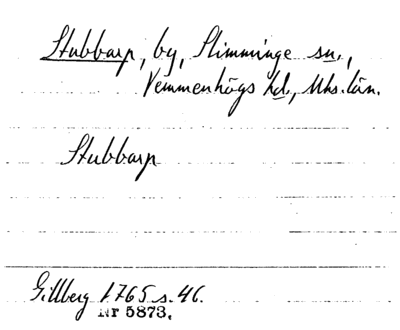 Stubbarp, by, Slimminge sn.,
Vemmenhögs hd., Mhs. län.
Stubbarp
Gillberg 1765 s. 46.
Nr 5873.